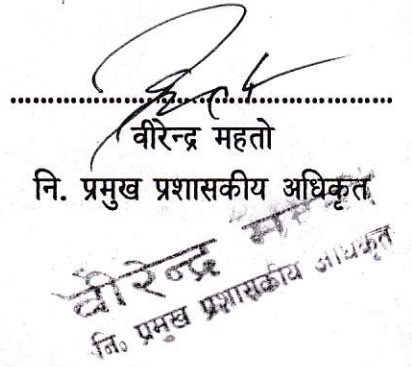 वीरेन्द्र महतो
नि. प्रमुख प्रशासकीय अधिकृत
वीरेन्द्र
नि० प्रमुख प्रशासकीय अधिकृत